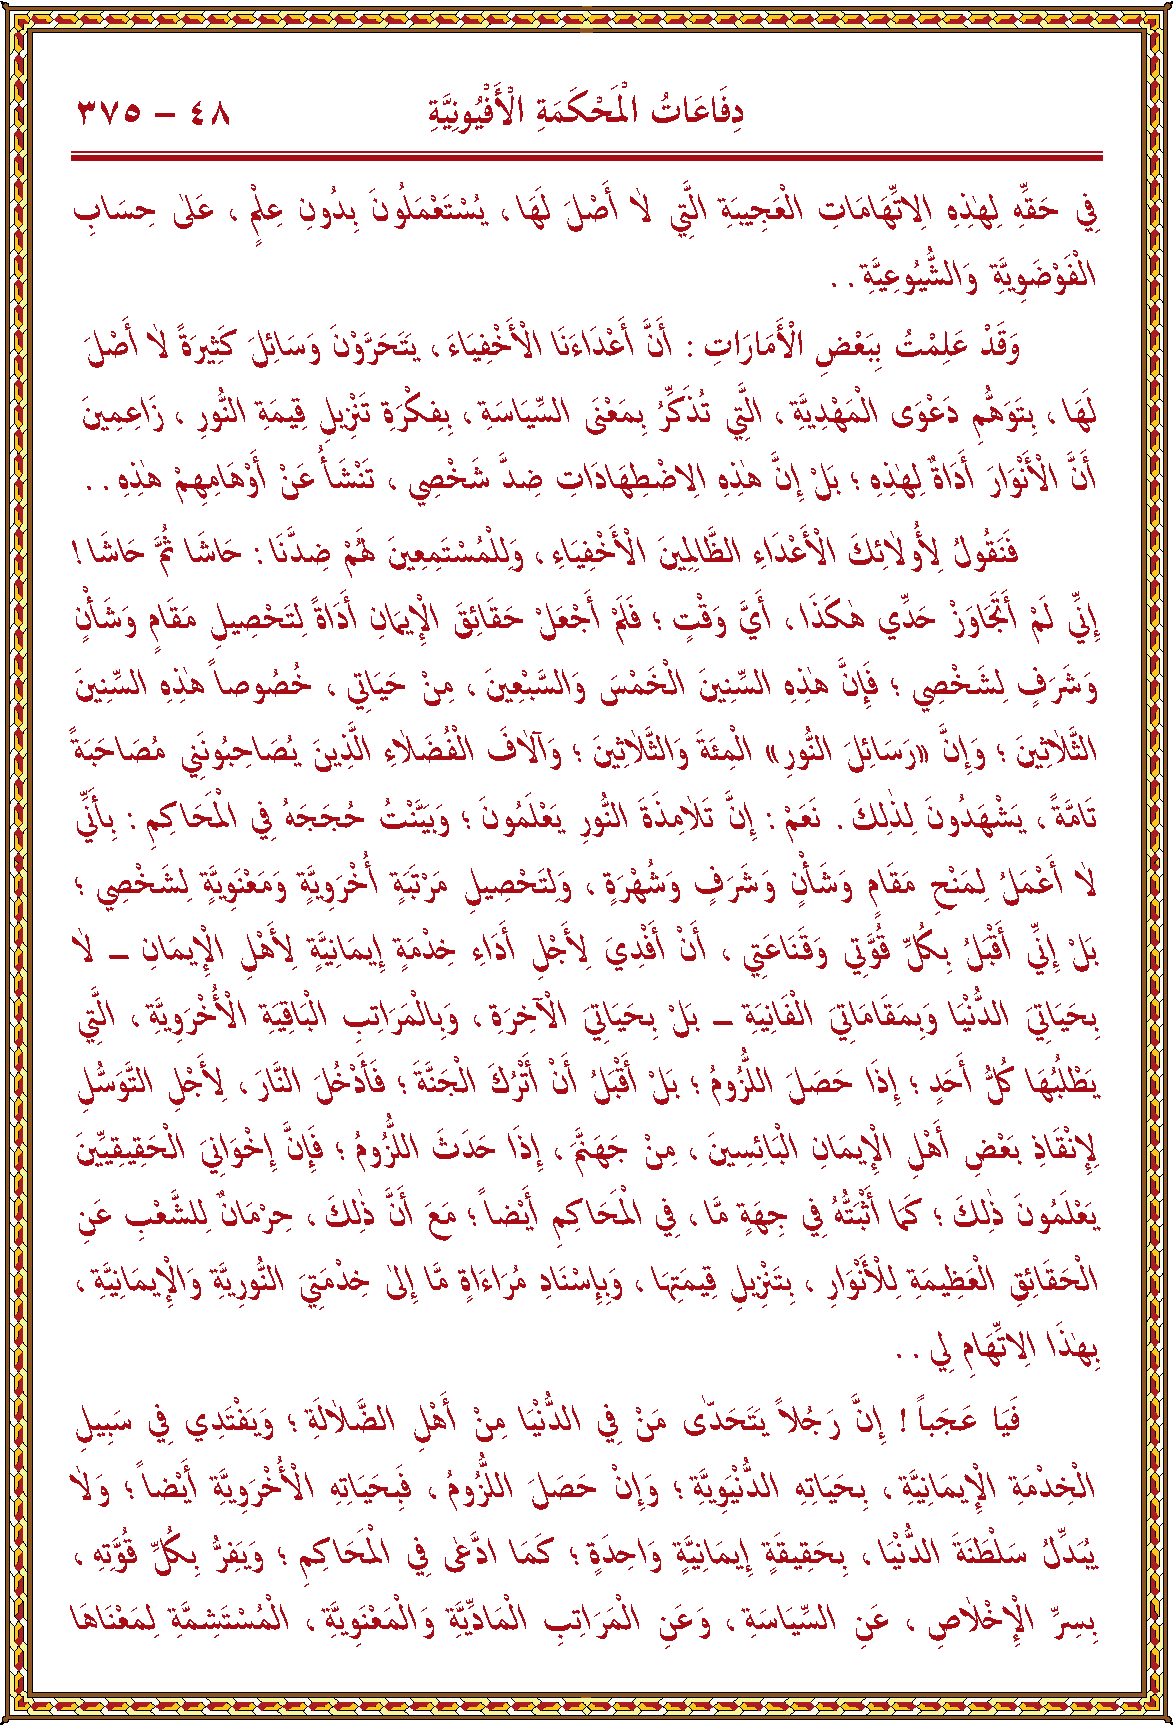 دِفَاعَاتُ الْمَحْكَمَةِ الْأَفْيُونِيَّةِ ٤٨ – ٣٧٥
فِي حَقِّهِ لِهٰذِهِ الِاتِّهَامَاتِ الْعَجِيبَةِ الَّتِي لَا أَصْلَ لَهَا ، يُسْتَعْمَلُونَ بِدُونِ عِلْمٍ ، عَلَى حِسَابِ
الْفَوْضَوِيَّةِ وَالشُّيُوعِيَّةِ . .
وَقَدْ عَلِمْتُ بِبَعْضِ الْأَمَارَاتِ : أَنَّ أَعْدَاءَنَا الْأَخْفِيَاءَ ، يَتَحَرَّوْنَ وَسَائِلَ كَثِيرَةً لَا أَصْلَ
لَهَا ، بِتَوَهُّمِ دَعْوَى الْمَهْدِيَّةِ ، الَّتِي تُذَكِّرُ بِمَعْنَى السِّيَاسَةِ ، بِفِكْرَةِ تَنْزِيلِ قِيمَةِ النُّورِ ، زَاعِمِينَ
أَنَّ الْأَنْوَارَ أَدَاةٌ لِهٰذِهِ ؛ بَلْ إِنَّ هٰذِهِ الِاضْطِهَادَاتِ ضِدَّ شَخْصِي ، تَنْشَأُ عَنْ أَوْهَامِهِمْ هٰذِهِ . .
فَنَقُولُ لِأُولٰئِكَ الْأَعْدَاءِ الظَّالِمِينَ الْأَخْفِيَاءِ ، وَلِلْمُسْتَمِعِينَ لَهُمْ ضِدَّنَا : حَاشَا ثُمَّ حَاشَا !
إِنِّي لَمْ أَتَجَاوَزْ حَدِّي هٰكَذَا ، أَيَّ وَقْتٍ ؛ فَلَمْ أَجْعَلْ حَقَائِقَ الْإِيمَانِ أَدَاةً لِتَحْصِيلِ مَقَامٍ وَشَأْنٍ
وَشَرَفٍ لِشَخْصِي ؛ فَإِنَّ هٰذِهِ السِّنِينَ الْخَمْسَ وَالسَّبْعِينَ ، مِنْ حَيَاتِي ، خُصُوصاً هٰذِهِ السِّنِينَ
الثَّلَاثِينَ ؛ وَإِنَّ «رَسَائِلَ النُّورِ» الْمِئَةَ وَالثَّلَاثِينَ ؛ وَآلَافَ الْفُضَلَاءِ الَّذِينَ يُصَاحِبُونَنِي مُصَاحَبَةً
تَامَّةً ، يَشْهَدُونَ لِذٰلِكَ . نَعَمْ : إِنَّ تَلَامِذَةَ النُّورِ يَعْلَمُونَ ؛ وَبَيَّنْتُ حُجَجَهُ فِي الْمَحَاكِمِ : بِأَنِّي
لَا أَعْمَلُ لِمَنْحِ مَقَامٍ وَشَأْنٍ وَشَرَفٍ وَشُهْرَةٍ ، وَلِتَحْصِيلِ مَرْتَبَةٍ أُخْرَوِيَّةٍ وَمَعْنَوِيَّةٍ لِشَخْصِي ؛
بَلْ إِنِّي أَقْبَلُ بِكُلِّ قُوَّتِي وَقَنَاعَتِي ، أَنْ أَفْدِيَ لِأَجْلِ أَدَاءِ خِدْمَةٍ إِيمَانِيَّةٍ لِأَهْلِ الْإِيمَانِ – لَا
بِحَيَاتِيَ الدُّنْيَا وَبِمَقَامَاتِيَ الْفَانِيَةِ – بَلْ بِحَيَاتِيَ الْآخِرَةِ ، وَبِالْمَرَاتِبِ الْبَاقِيَةِ الْأُخْرَوِيَّةِ ، الَّتِي
يَطْلُبُهَا كُلُّ أَحَدٍ ؛ إِذَا حَصَلَ اللُّزُومُ ؛ بَلْ أَقْبَلُ أَنْ أَتْرُكَ الْجَنَّةَ ؛ فَأَدْخُلَ النَّارَ ، لِأَجْلِ التَّوَسُّلِ
لِإِنْقَاذِ بَعْضِ أَهْلِ الْإِيمَانِ الْبَائِسِينَ ، مِنْ جَهَنَّمَ ، إِذَا حَدَثَ اللُّزُومُ ؛ فَإِنَّ إِخْوَانِيَ الْحَقِيقِيِّينَ
يَعْلَمُونَ ذٰلِكَ ؛ كَمَا أَثْبَتُّهُ فِي جِهَةٍ مَّا ، فِي الْمَحَاكِمِ أَيْضاً ؛ مَعَ أَنَّ ذٰلِكَ ، حِرْمَانٌ لِلشَّعْبِ عَنِ
الْحَقَائِقِ الْعَظِيمَةِ لِلْأَنْوَارِ ، بِتَنْزِيلِ قِيمَتِهَا ، وَبِإِسْنَادِ مُرَاءَاةٍ مَّا إِلَى خِدْمَتِيَ النُّورِيَّةِ وَالْإِيمَانِيَّةِ ،
بِهٰذَا الِاتِّهَامِ لِي . .
فَيَا عَجَباً ! إِنَّ رَجُلاً يَتَحَدّٰى مَنْ فِي الدُّنْيَا مِنْ أَهْلِ الضَّلَالَةِ ؛ وَيَفْتَدِي فِي سَبِيلِ
الْخِدْمَةِ الْإِيمَانِيَّةِ ، بِحَيَاتِهِ الدُّنْيَوِيَّةِ ؛ وَإِنْ حَصَلَ اللُّزُومُ ، فَبِحَيَاتِهِ الْأُخْرَوِيَّةِ أَيْضاً ؛ وَلَا
يُبَدِّلُ سَلْطَنَةَ الدُّنْيَا ، بِحَقِيقَةٍ إِيمَانِيَّةٍ وَاحِدَةٍ ؛ كَمَا ادَّعٰى فِي الْمَحَاكِمِ ؛ وَيَفِرُّ بِكُلِّ قُوَّتِهِ ،
بِسِرِّ الْإِخْلَاصِ ، عَنِ السِّيَاسَةِ ، وَعَنِ الْمَرَاتِبِ الْمَادِّيَّةِ وَالْمَعْنَوِيَّةِ ، الْمُسْتَشِمَّةِ لِمَعْنَاهَا